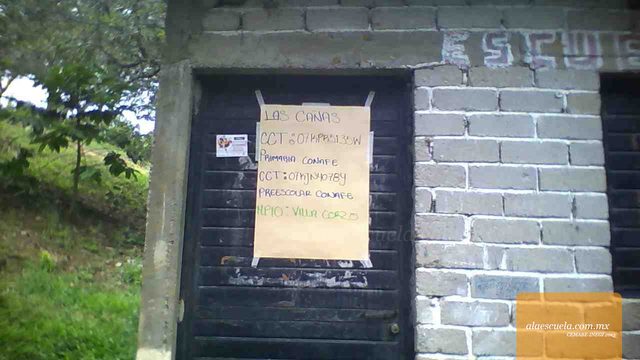 ESCUE
LAS CAÑAS
CCT: 07KPR5135W
PRIMARIA CONAFE
CCT: 07KJN4078Y
PREESCOLAR CONAFE
MPIO: VILLA CORZO
alaescuela.com.mx